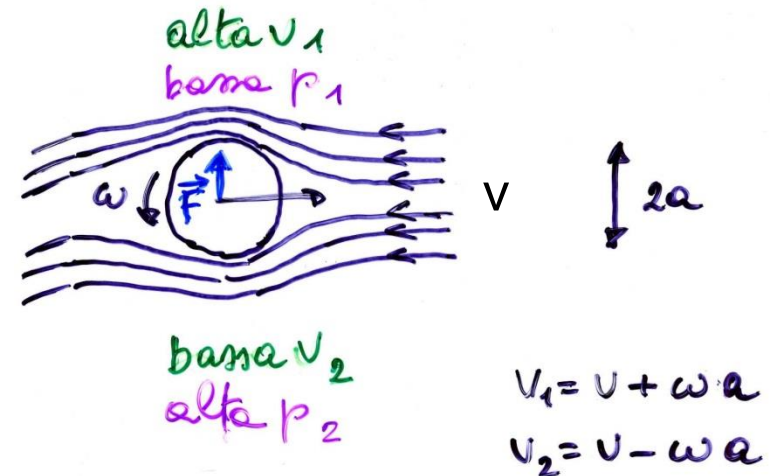 alta v1
bassa p1
ω
F
V
2a
bassa v2
alta p2
V1 = V + ω a
V2 = V - ω a